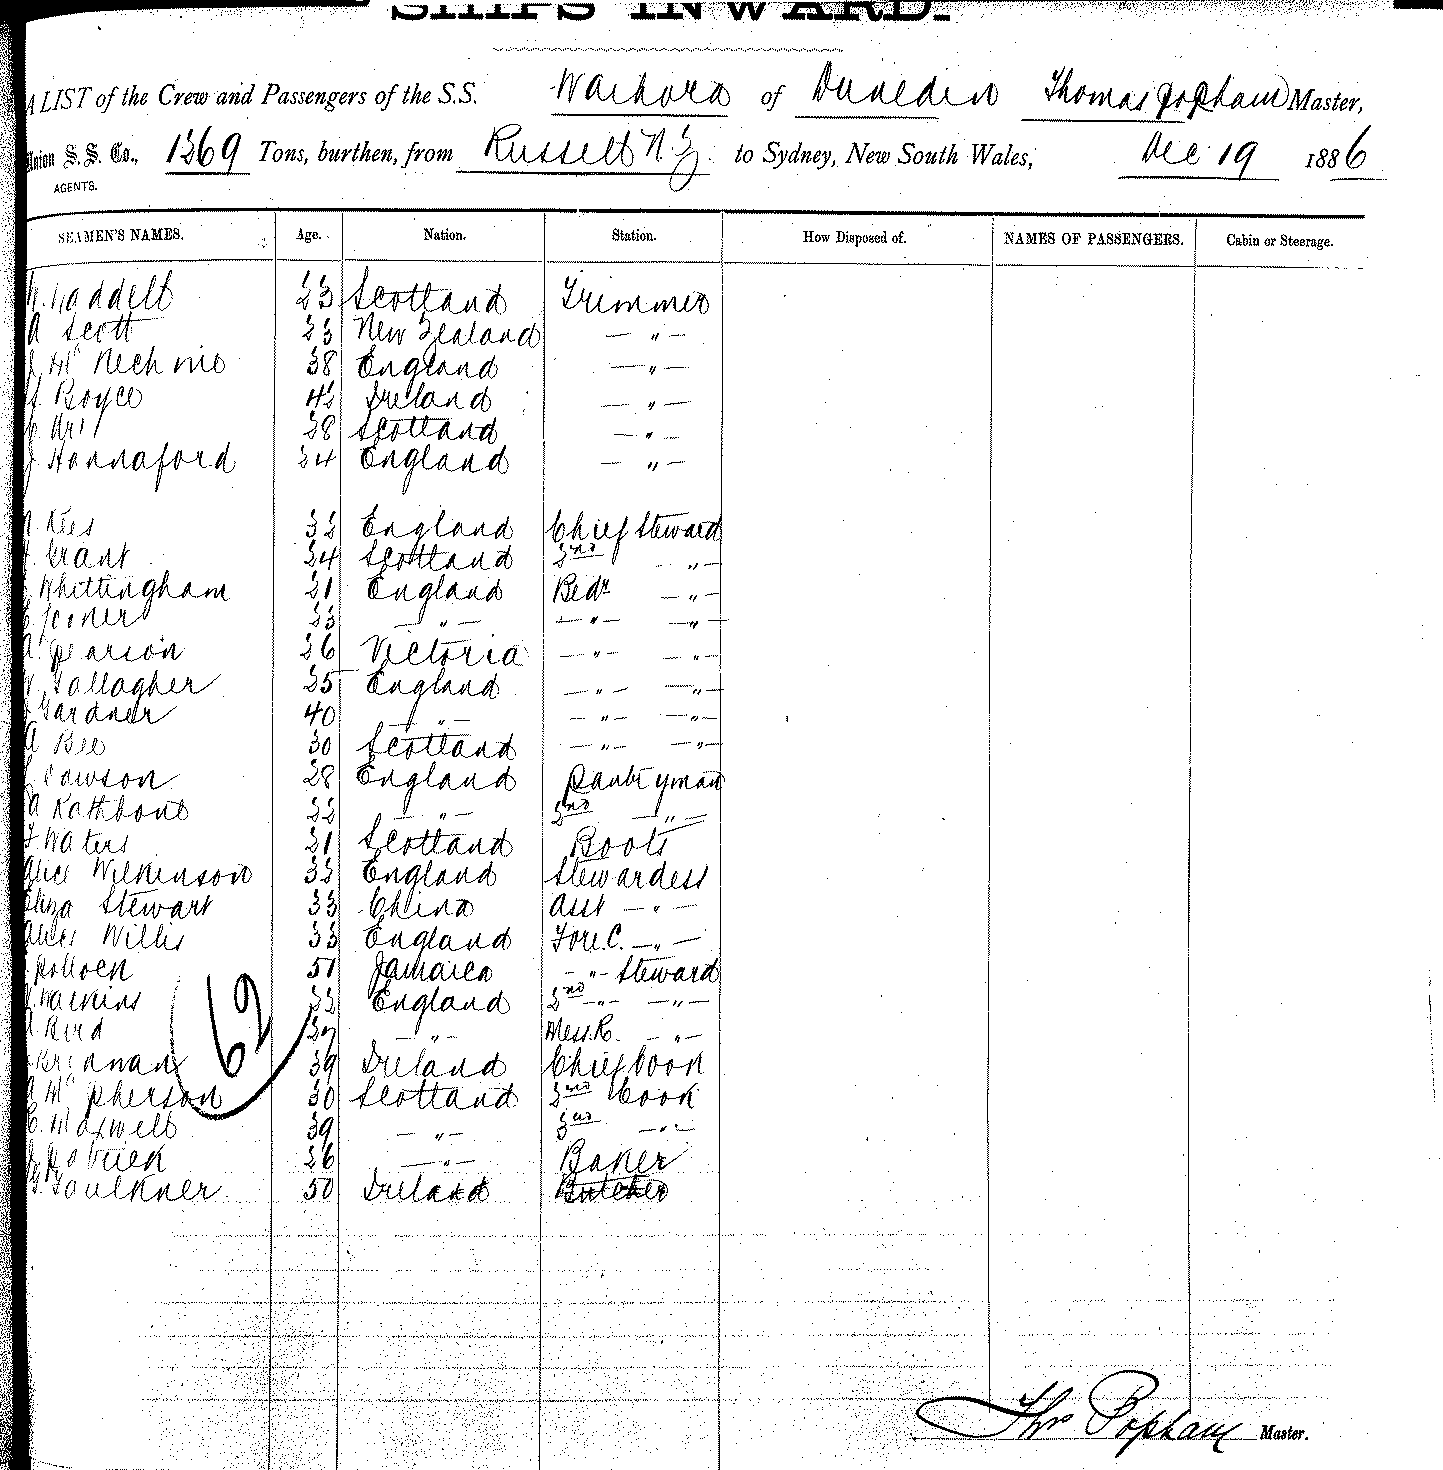 SHIPS INWARD.
A LIST of the Crew and Passengers of the S.S. Waihora of Dunedin Thomas Popham Master,
Union S. S. Co., 1269 Tons, burthen, from Russell N.Z. to Sydney, New South Wales, Dec 19 1886
AGENTS.
SEAMEN'S NAMES. Age. Nation. Station. How Disposed of. NAMES OF PASSENGERS. Cabin or Steerage.
Waddell 23 Scotland Trimmer
A Scott 23 New Zealand — " —
McKechnie 38 England — " —
Boyce 42 Ireland — " —
28 Scotland — " —
J Hannaford 24 England — " —
Rees 32 England Chief Steward
Grant 24 Scotland 2nd " —
Whittingham 21 England Bedr — " —
23 — " — — " — — " —
A Pearson 26 Victoria — " — — " —
Gallagher 25 England — " — — " —
Gardner 40 — " — — " — — " —
A Bee 30 Scotland — " — — " —
Dawson 28 England Pantryman
A Rathbone 22 — " — 2nd — " —
F. Waters 21 Scotland Boots
Alice Wilkinson 33 England Stewardess
Eliza Stewart 33 China Asst — " —
Alice Willis 33 England Fore.C. — " —
Pollock 51 Jamaica — " — Steward
Watkins 22 England 2nd — " — — " —
A. Bird — " — Mess.R. — " —
Brennan 39 Ireland Chief Cook
A McPherson 30 Scotland 2nd Cook
C. Maxwell 39 — " — 3rd — " —
26 — " — Baker
G. Faulkner 50 Ireland Butcher
62
Thos Popham Master.